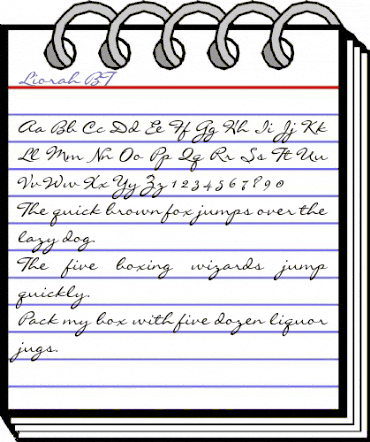 Liorah BT
Aa Bb Cc Dd Ee Ff Gg Hh Ii Jj Kk
Ll Mm Nn Oo Pp Qq Rr Ss Tt Uu
Vv Ww Xx Yy Zz 1 2 3 4 5 6 7 8 9 0
The quick brown fox jumps over the
lazy dog.
The five boxing wizards jump
quickly.
Pack my box with five dozen liquor
jugs.